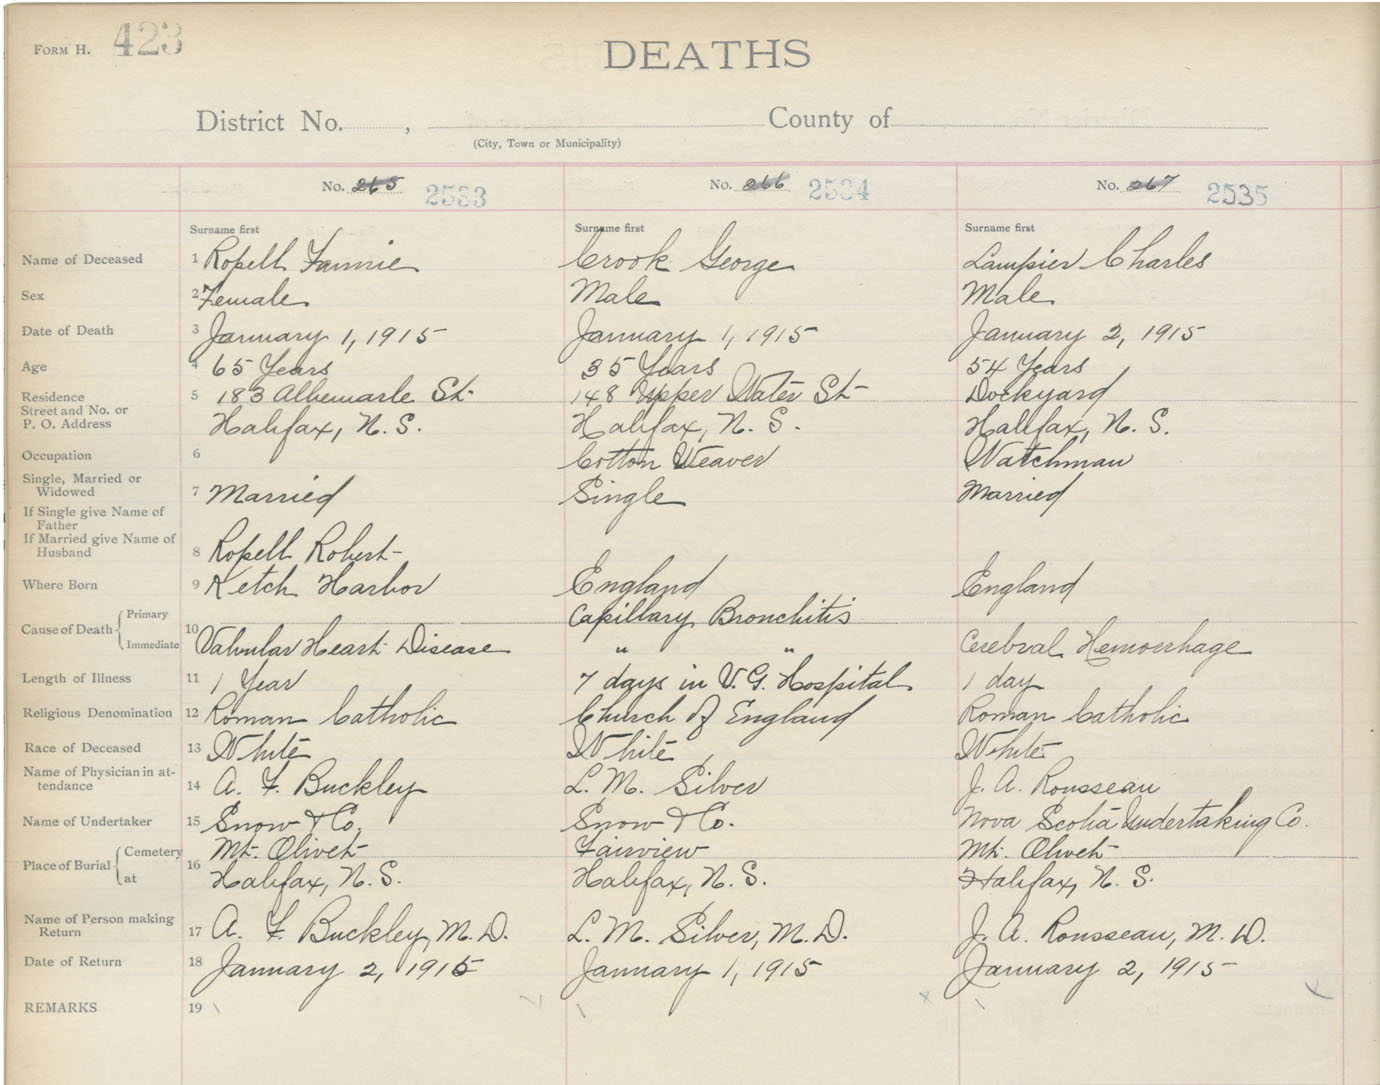 FORM H. 423
DEATHS
District No. , County of
(City, Town or Municipality)
No. 265 2533 No. 266 2534 No. 267 2535
Surname first Surname first Surname first
Name of Deceased 1 Ropell Fannie Crook George Lampier Charles
Sex 2 Female Male Male
Date of Death 3 January 1, 1915 January 1, 1915 January 2, 1915
Age 4 65 Years 35 Years 54 Years
Residence 5 183 Albemarle St. 148 Upper Water St. Dockyard
Street and No. or
P. O. Address Halifax, N. S. Halifax, N. S. Halifax, N. S.
Occupation 6 Cotton Weaver Watchman
Single, Married or
Widowed 7 Married Single Married
If Single give Name of
Father
If Married give Name of
Husband 8 Ropell Robert
Where Born 9 Ketch Harbor England England
Primary Capillary Bronchitis
Cause of Death 10
Immediate Valvular Heart Disease " " Cerebral Hemorrhage
Length of Illness 11 1 Year 7 days in V. G. Hospital 1 day
Religious Denomination 12 Roman Catholic Church of England Roman Catholic
Race of Deceased 13 White White White
Name of Physician in at-
tendance 14 A. F. Buckley L. M. Silver J. A. Rousseau
Name of Undertaker 15 Snow & Co. Snow & Co. Nova Scotia Undertaking Co.
Cemetery Mt. Olivet Fairview Mt. Olivet
Place of Burial 16
at Halifax, N. S. Halifax, N. S. Halifax, N. S.
Name of Person making
Return 17 A. F. Buckley, M. D. L. M. Silver, M. D. J. A. Rousseau, M. D.
Date of Return 18 January 2, 1915 January 1, 1915 January 2, 1915
REMARKS 19